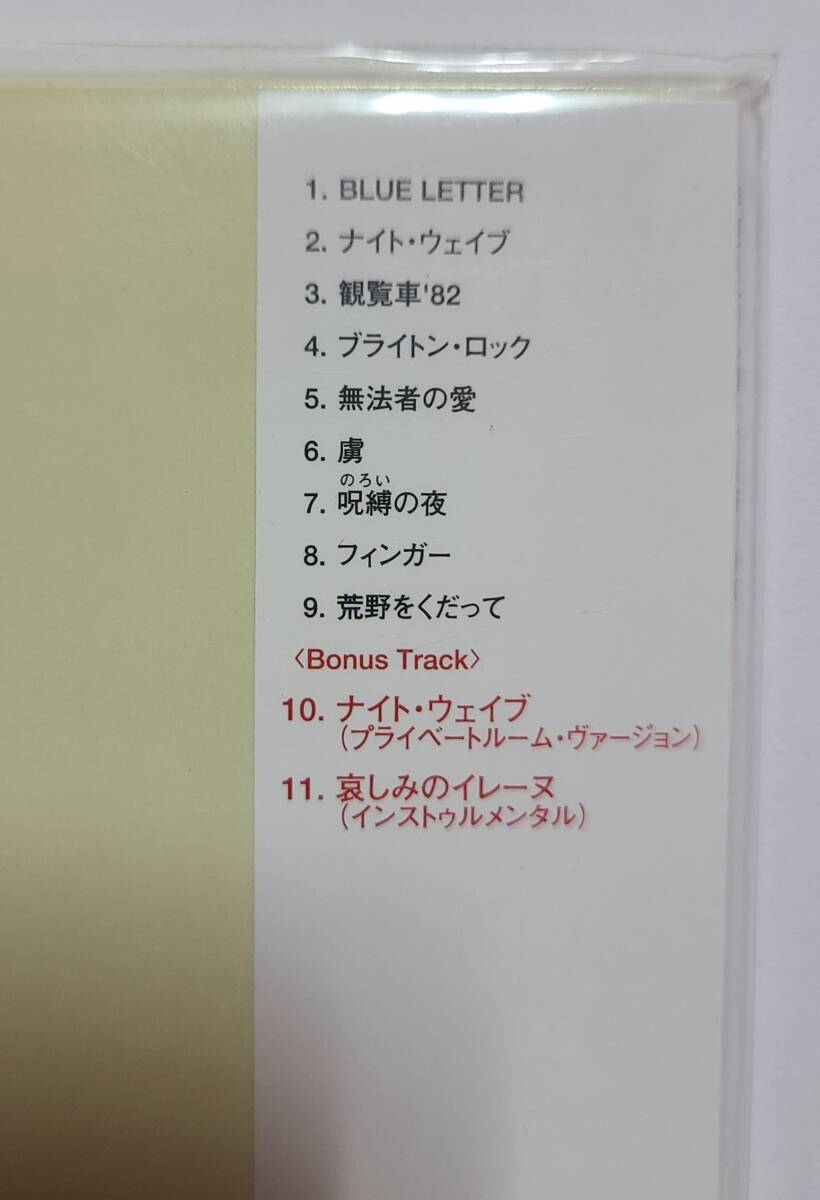 1. BLUE LETTER
2. ナイト・ウェイブ
3. 観覧車'82
4. ブライトン・ロック
5. 無法者の愛
6. 虜
のろい
7. 呪縛の夜
8. フィンガー
9. 荒野をくだって
〈Bonus Track〉
10. ナイト・ウェイブ
(プライベートルーム・ヴァージョン)
11. 哀しみのイレーヌ
(インストゥルメンタル)